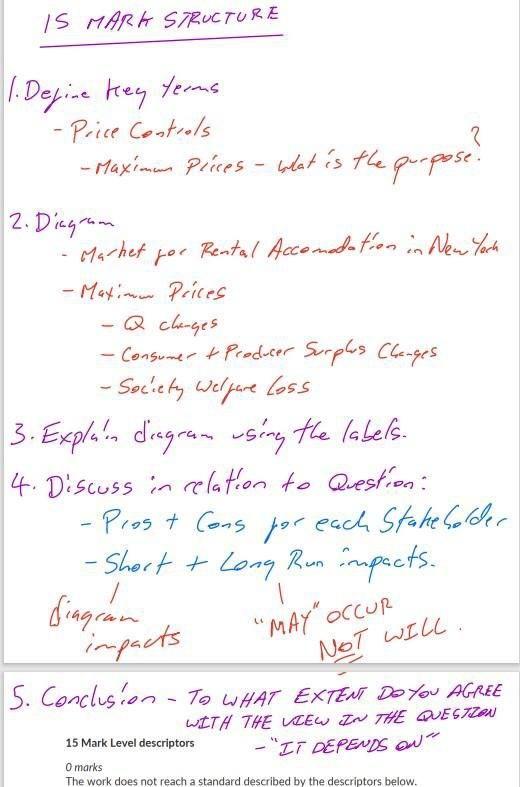 15 MARK STRUCTURE
1. Define key terms
- Price Controls
- Maximum Prices - what is the purpose?
2. Diagram
- Market for Rental Accomodation in New York
- Maximum Prices
- Q changes
- Consumer + Producer Surplus Changes
- Society Welfare Loss
3. Explain diagram using the labels.
4. Discuss in relation to Question:
- Pros + Cons for each Stakeholder
- Short + Long Run impacts.
diagram impacts
"MAY" OCCUR
NOT WILL.
5. Conclusion - TO WHAT EXTENT DO YOU AGREE
WITH THE VIEW IN THE QUESTION
- "IT DEPENDS ON"
15 Mark Level descriptors
0 marks
The work does not reach a standard described by the descriptors below.